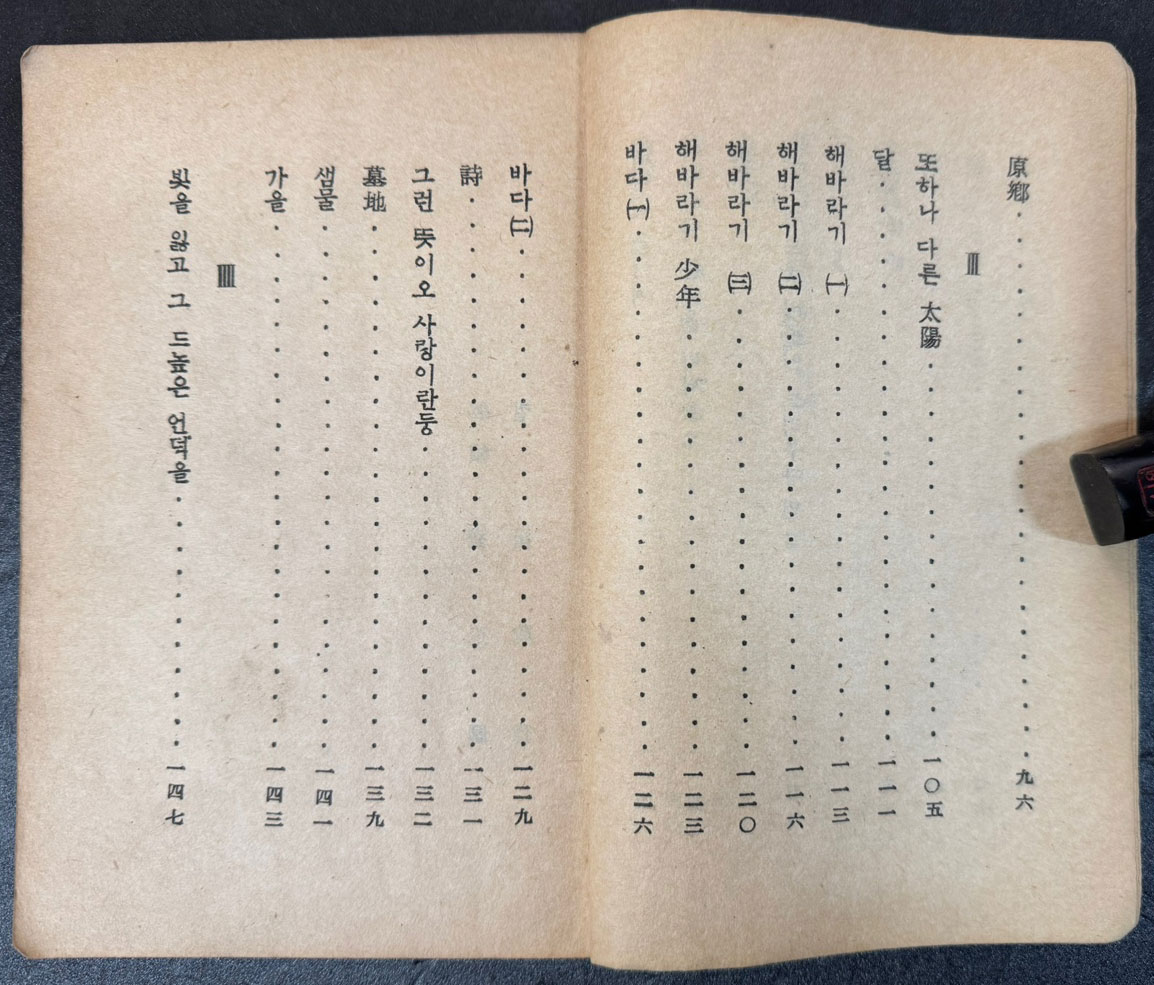 原鄕·······················九六
Ⅲ
또하나 다른 太陽················一〇五
달·······················一一一
해바라기 ㈠··················一一三
해바라기 ㈡··················一一六
해바라기 ㈢··················一二〇
해바라기 少年·················一二三
바다㈠·····················一二六
바다㈡·····················一二九
詩······················一三一
그런 뜻이오 사랑이란둥·············一三二
墓地·····················一三九
샘물·····················一四一
가을·····················一四三
IIII
빛을 잃고 그 드높은 언덕을···········一四七